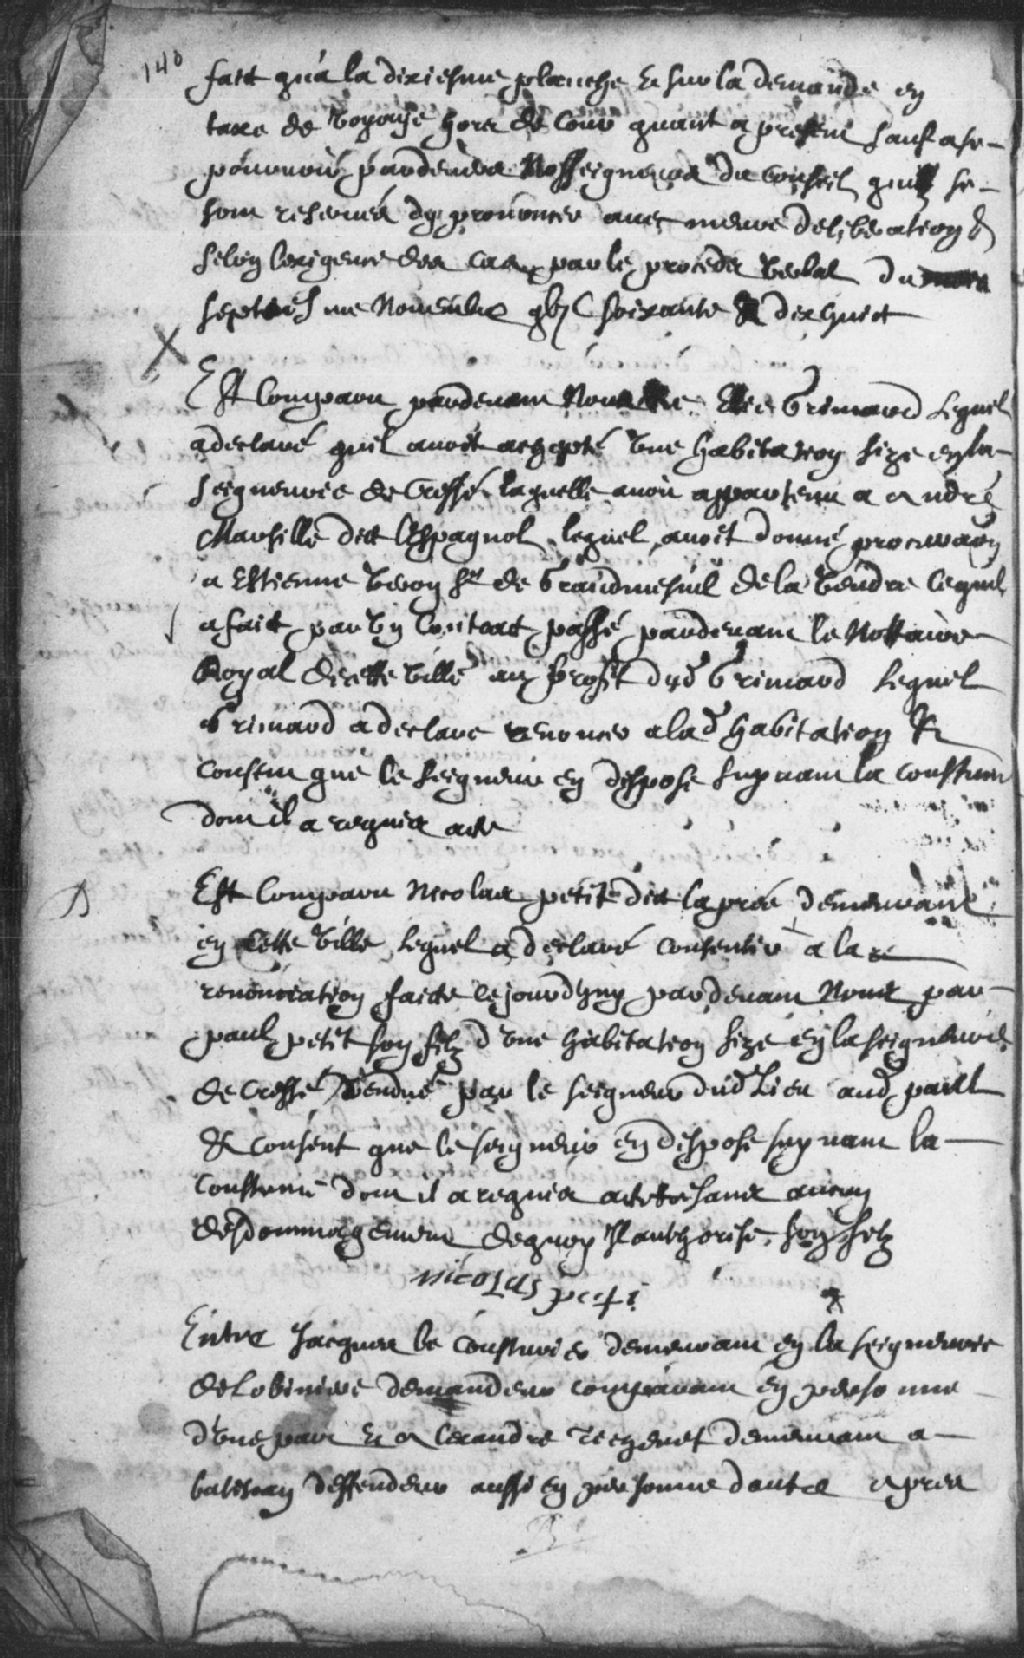 140
faict qu'a la dixiesme planche Et sur la demande en
taxe de voyage hors de Cour quant a present sauf a se
pourvoir pardevers Nosseigneurs du Conseil quilz se
sont reservez dy prononcer avec meure deliberation &
selon lexigence des cas par le procedz verbal du
septiesme Novembre gbjC soixante & dixhuict
X
Est Comparu pardevant Nous Elie Grimard Lequel
a declaré quil avoit achepté Une habitation size en la
seigneurie de Gressé laquelle avoit appartenu a André
Marsille dict lEspagnol lequel avoit donné procuraon
a Estienne Veron Sr de Grandmesnil de la Vendre ce quil
a fait par Un Contract passé pardevant le Nottaire
Royal de cette Ville au proffit dud Grimard Lequel
Grimard a declare renoncer a lad habitation &
consent que le seigneur en dispose suyvant la coustume
dont il a requis acte
Est Comparu Nicolas petit dict laprée demeurant
en Cette Ville Lequel a declaré consentir a la
renonciation faicte cejourdhuy pardevant Nous par
paul petit son filz d'Une habitation size en la seigneurie
de Gressé Vendue par le seigneur dud Lieu aud paul
Et consent que le seigneur en dispose suyvant la
Coustume dont il a requis acte sans aucun
desdommagement dequoy Il authorise son filz
nicolas petit
Entre Jacques le Cousturier demeurant en la seigneurie
de Lobiniere demandeur comparant en personne
d'Une part Et Alexandre Techenet demeurant a
batiscan deffendeur aussi en personne dautre apres